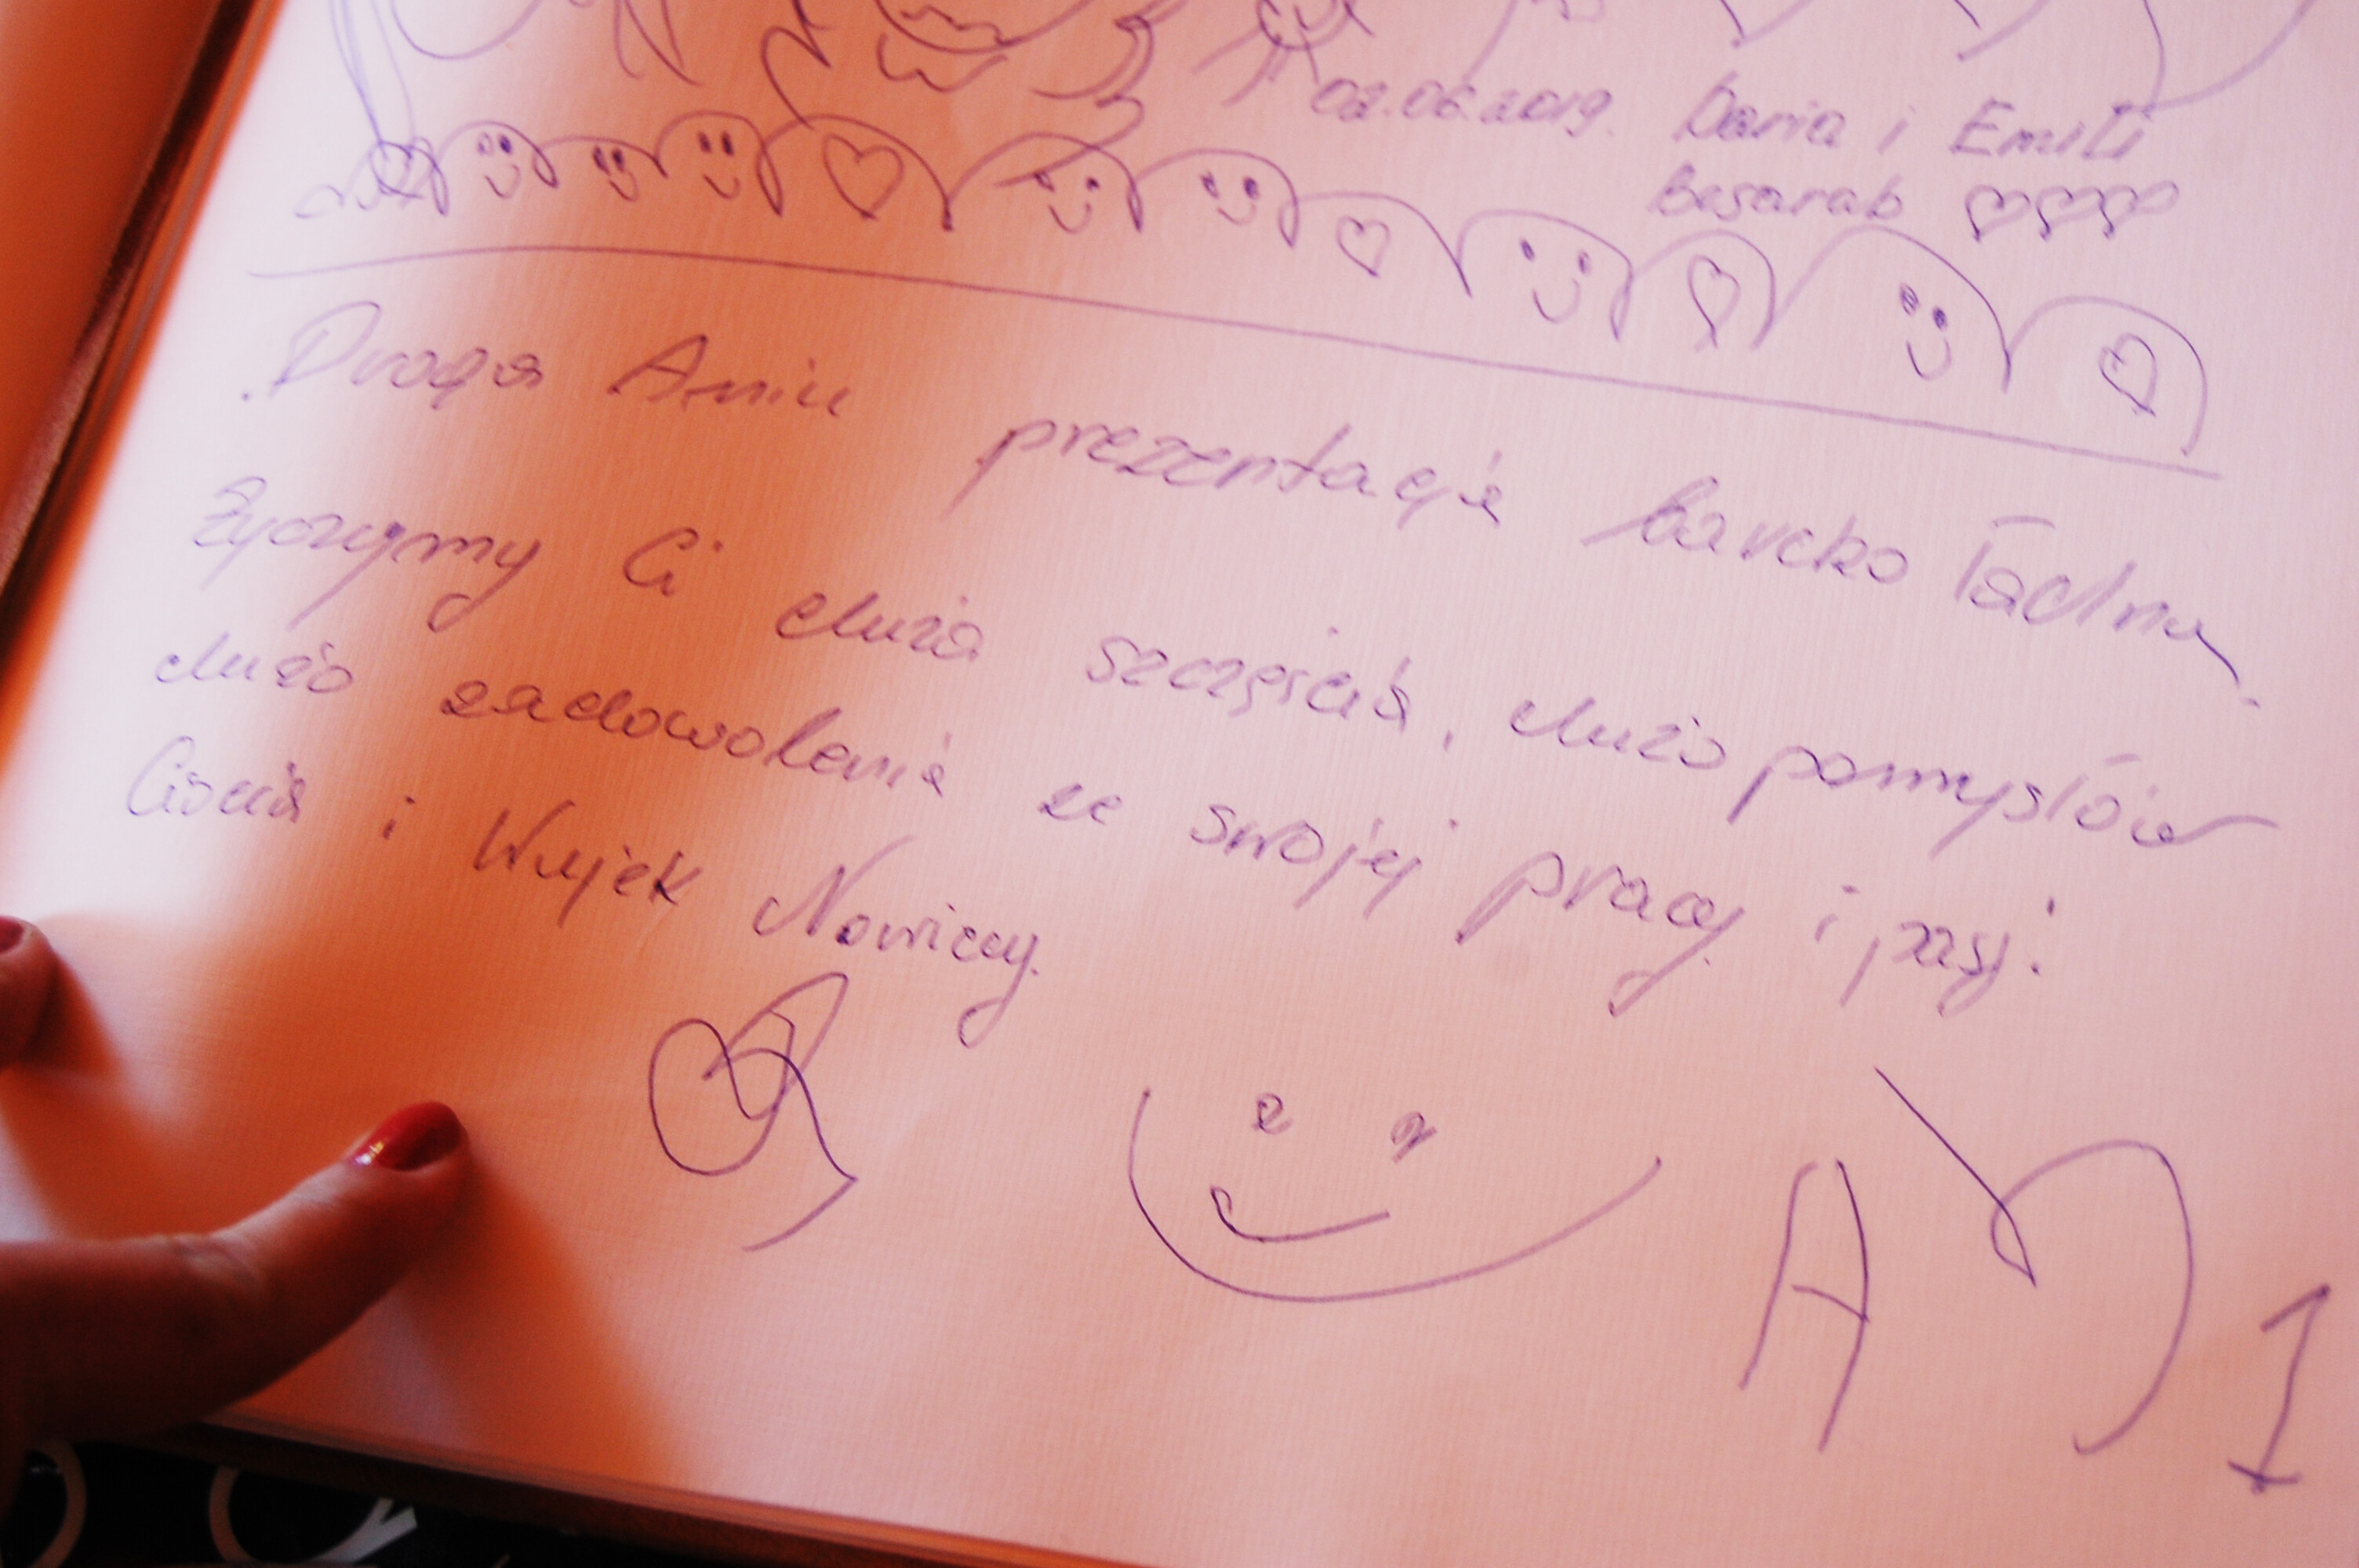 02.06.2019. Daria i Emili
Besarab
Droga Aniu prezentacja bardzo ładna.
Życzymy Ci dużo szczęścia, dużo pomysłów
dużo zadowolenia ze swojej pracy i pasji
Ciocia i Wujek Nowiccy.
A 1